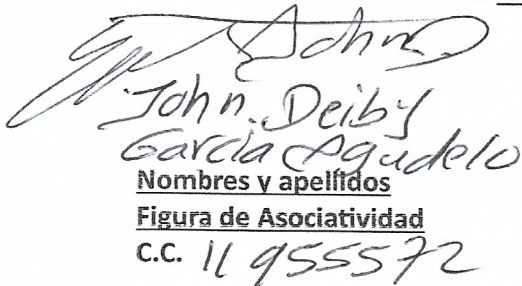 John
John Deiby
Garcia Agudelo
Nombres y apellidos
Figura de Asociatividad
C.C. 11955572